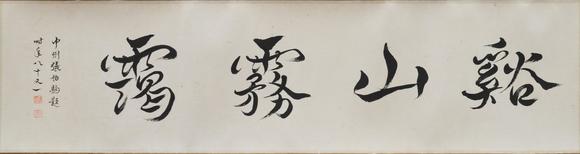 谿山霧靄
中州張伯駒題
時年八十又一